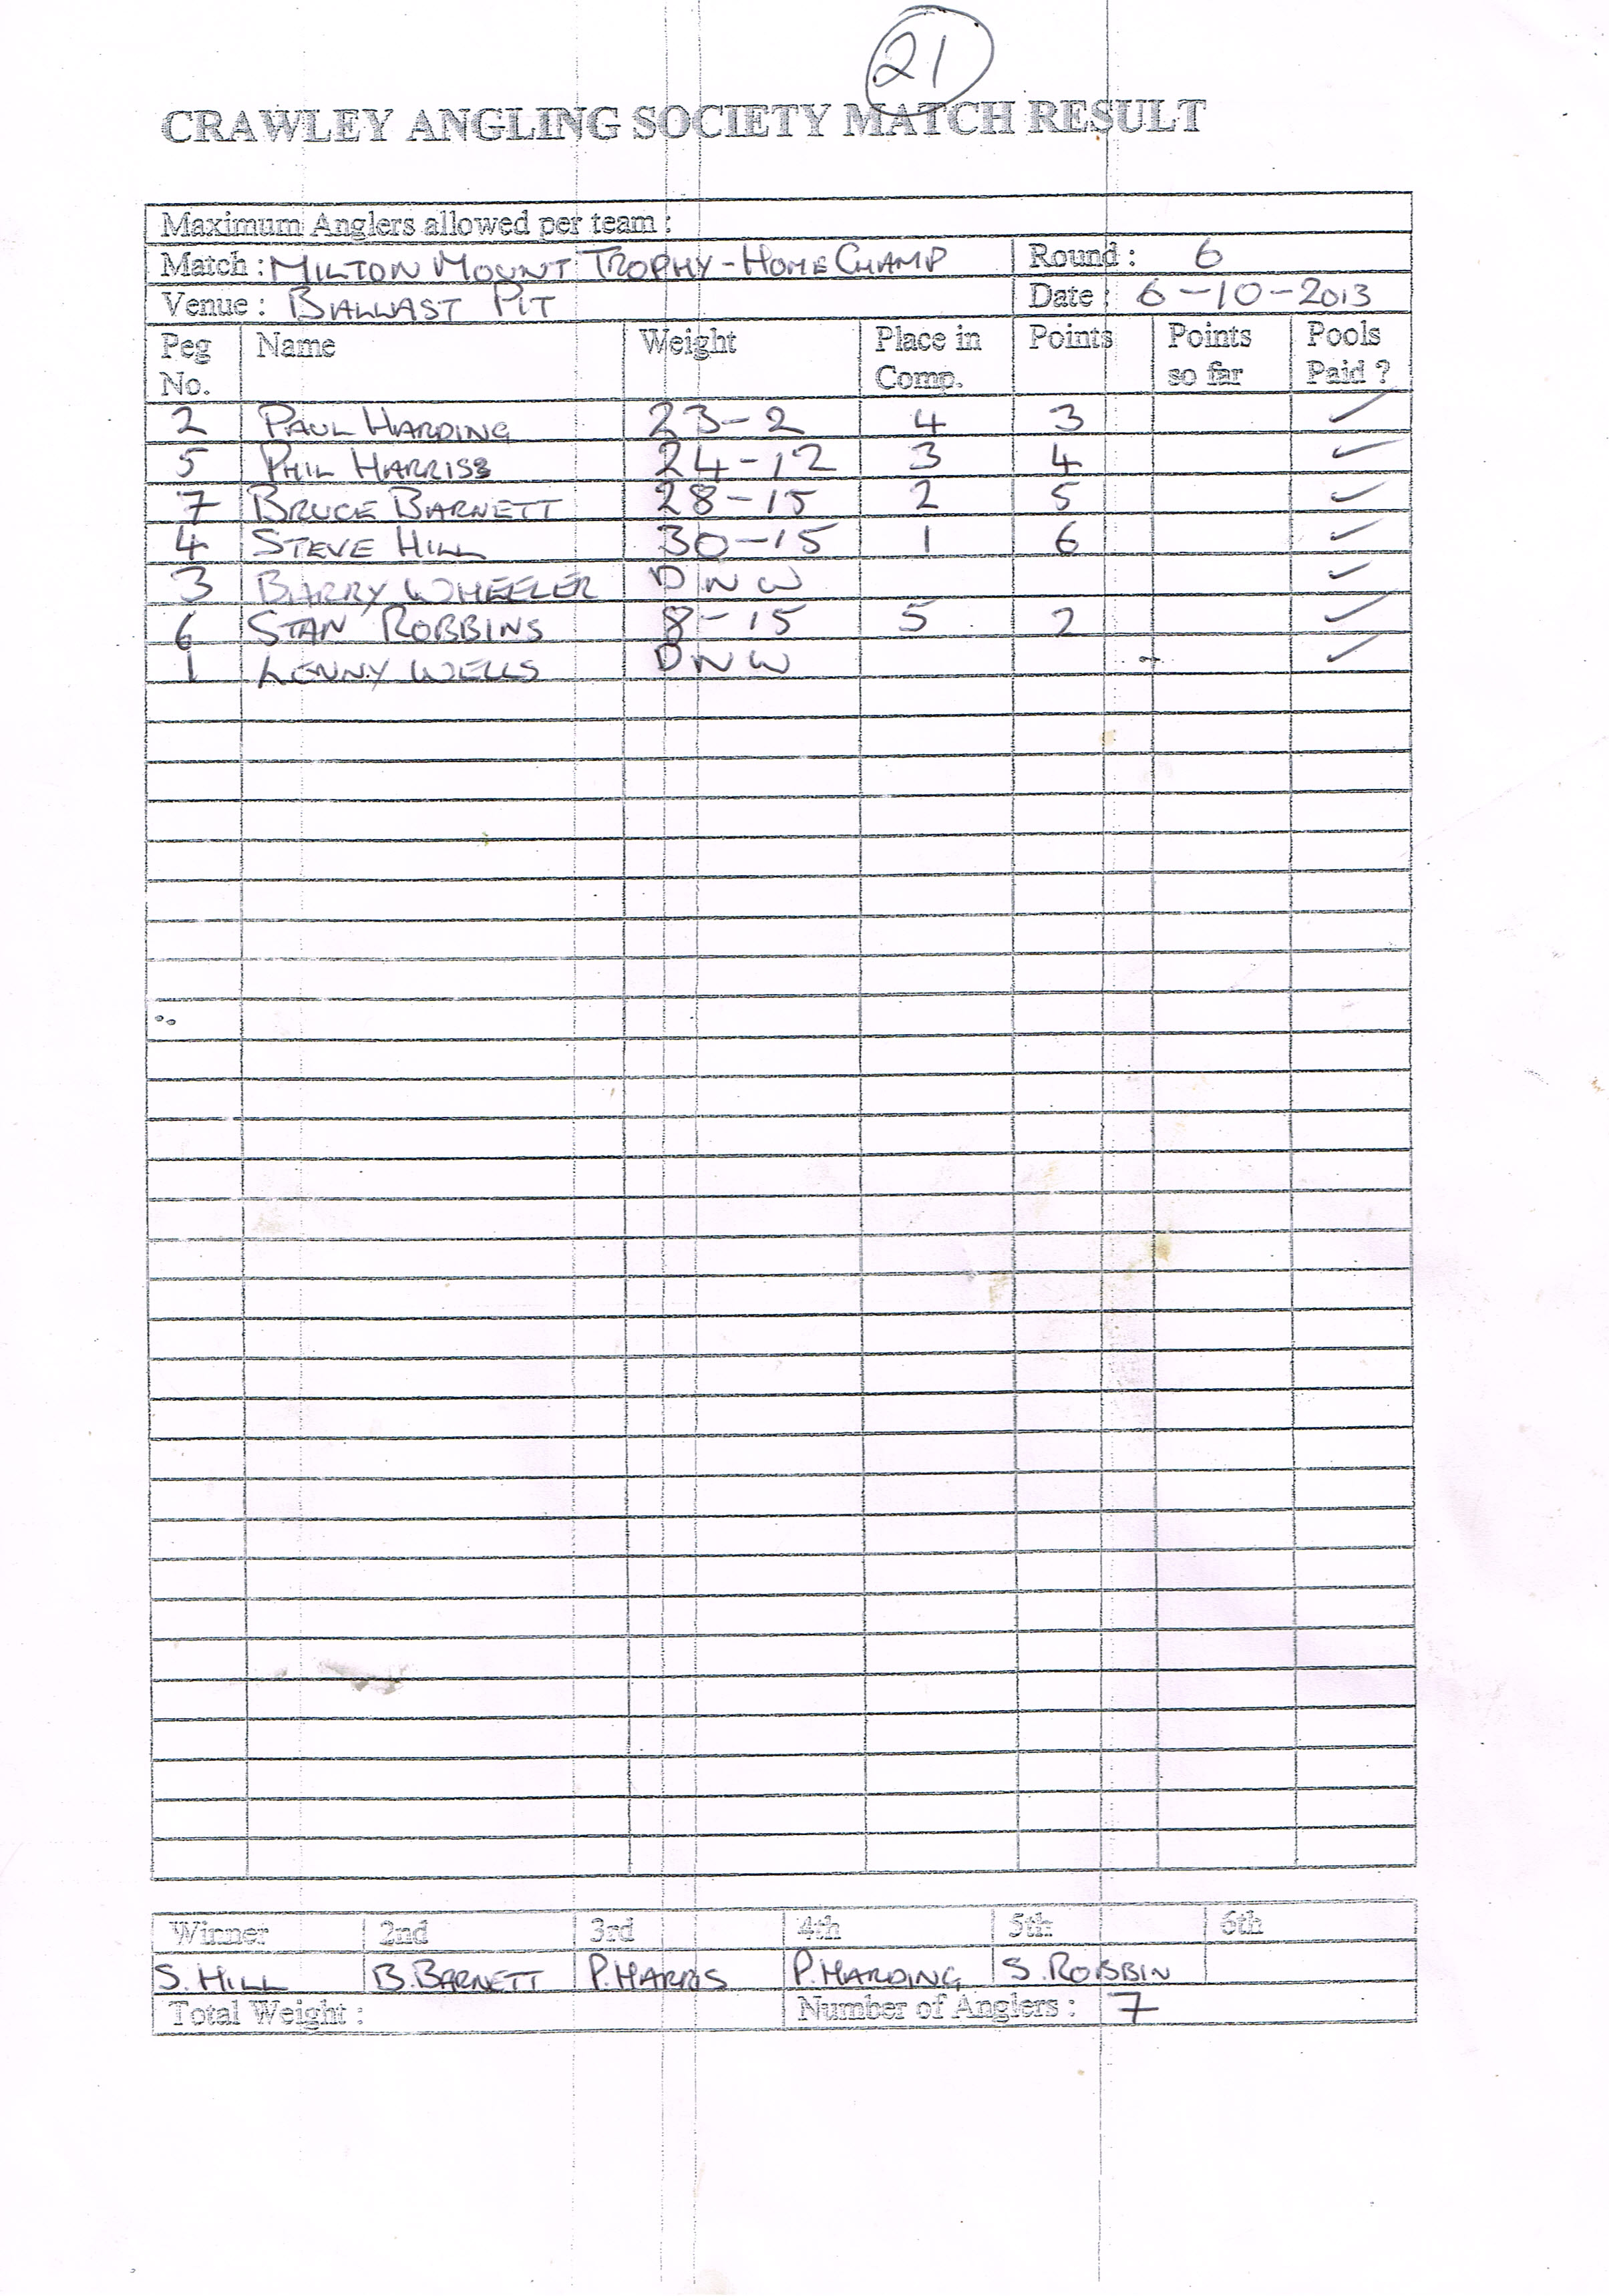 21
CRAWLEY ANGLING SOCIETY MATCH RESULT
Maximum Anglers allowed per team :
Match : MILTON MOUNT TROPHY - HOME CHAMP Round : 6
Venue : BALLAST PIT Date : 6-10-2013
Peg No. Name Weight Place in Comp. Points Points so far Pools Paid ?
2 PAUL HARDING 23-2 4 3 ✓
5 PHIL HARRIS 24-12 3 4 ✓
7 BRUCE BARNETT 28-15 2 5 ✓
4 STEVE HILL 30-15 1 6 ✓
3 BARRY WHEELER DNW ✓
6 STAN ROBBINS 8-15 5 2 ✓
1 LENNY WELLS DNW ✓
Winner 2nd 3rd 4th 5th 6th
S. HILL B. BARNETT P. HARRIS P. HARDING S. ROBBIN
Total Weight : Number of Anglers : 7